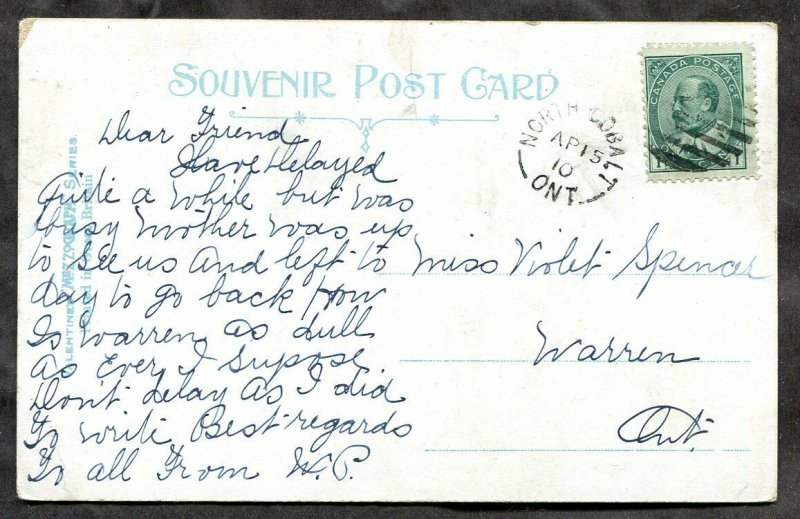 SOUVENIR POST CARD
Dear Friend
Have Delayed
Quite a while but was
busy Mother was up
to see us and left to
day to go back How
Is Warren as dull
as Ever I Supose
Don't delay As I did
To write Best regards
To all From W.P.
Miss Violet Spencer
Warren
Ont.
NORTH COBALT
AP 15
10
ONT.
CANADA POSTAGE
VALENTINE'S MEZZOGRAPH SERIES
Printed in Great Britain